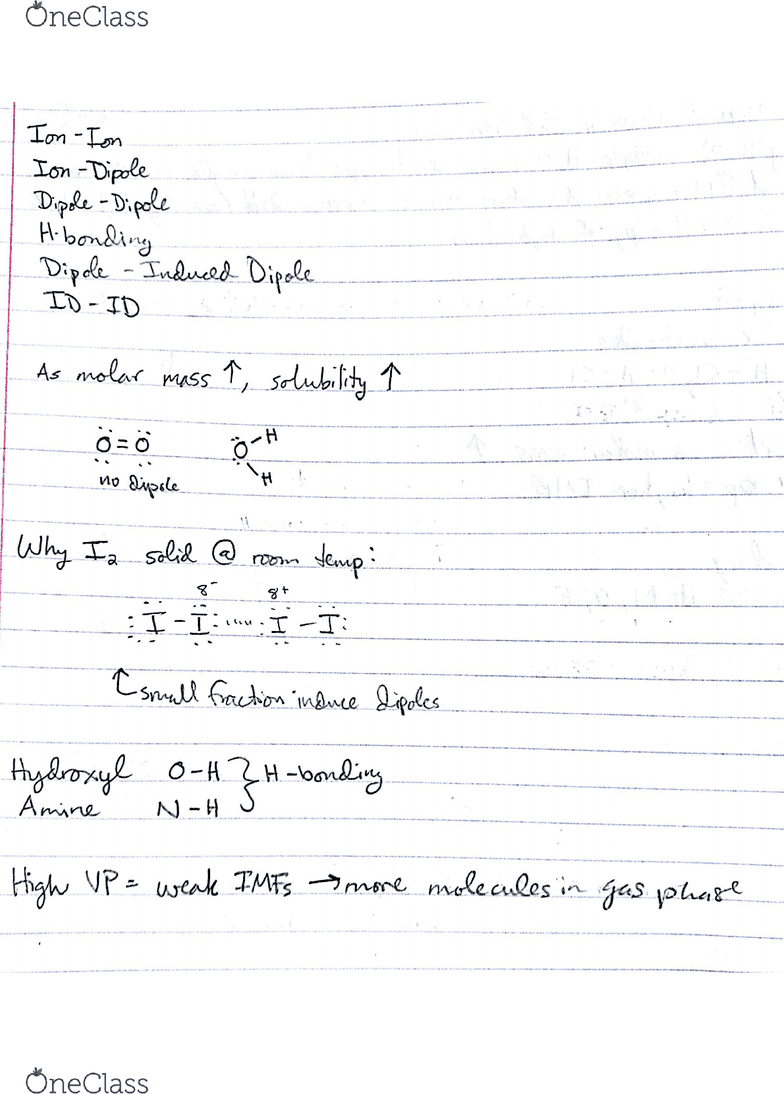 OneClass
Ion-Ion
Ion-Dipole
Dipole-Dipole
H-bonding
Dipole - Induced Dipole
ID-ID
As molar mass ↑, solubility ↑
O=O
no dipole
O-H
H
Why I₂ solid @ room temp:
δ⁻ δ⁺
:I-I:.....:I-I:
↑ small fraction induce dipoles
Hydroxyl O-H } H-bonding
Amine N-H
High VP = weak IMFs → more molecules in gas phase
OneClass